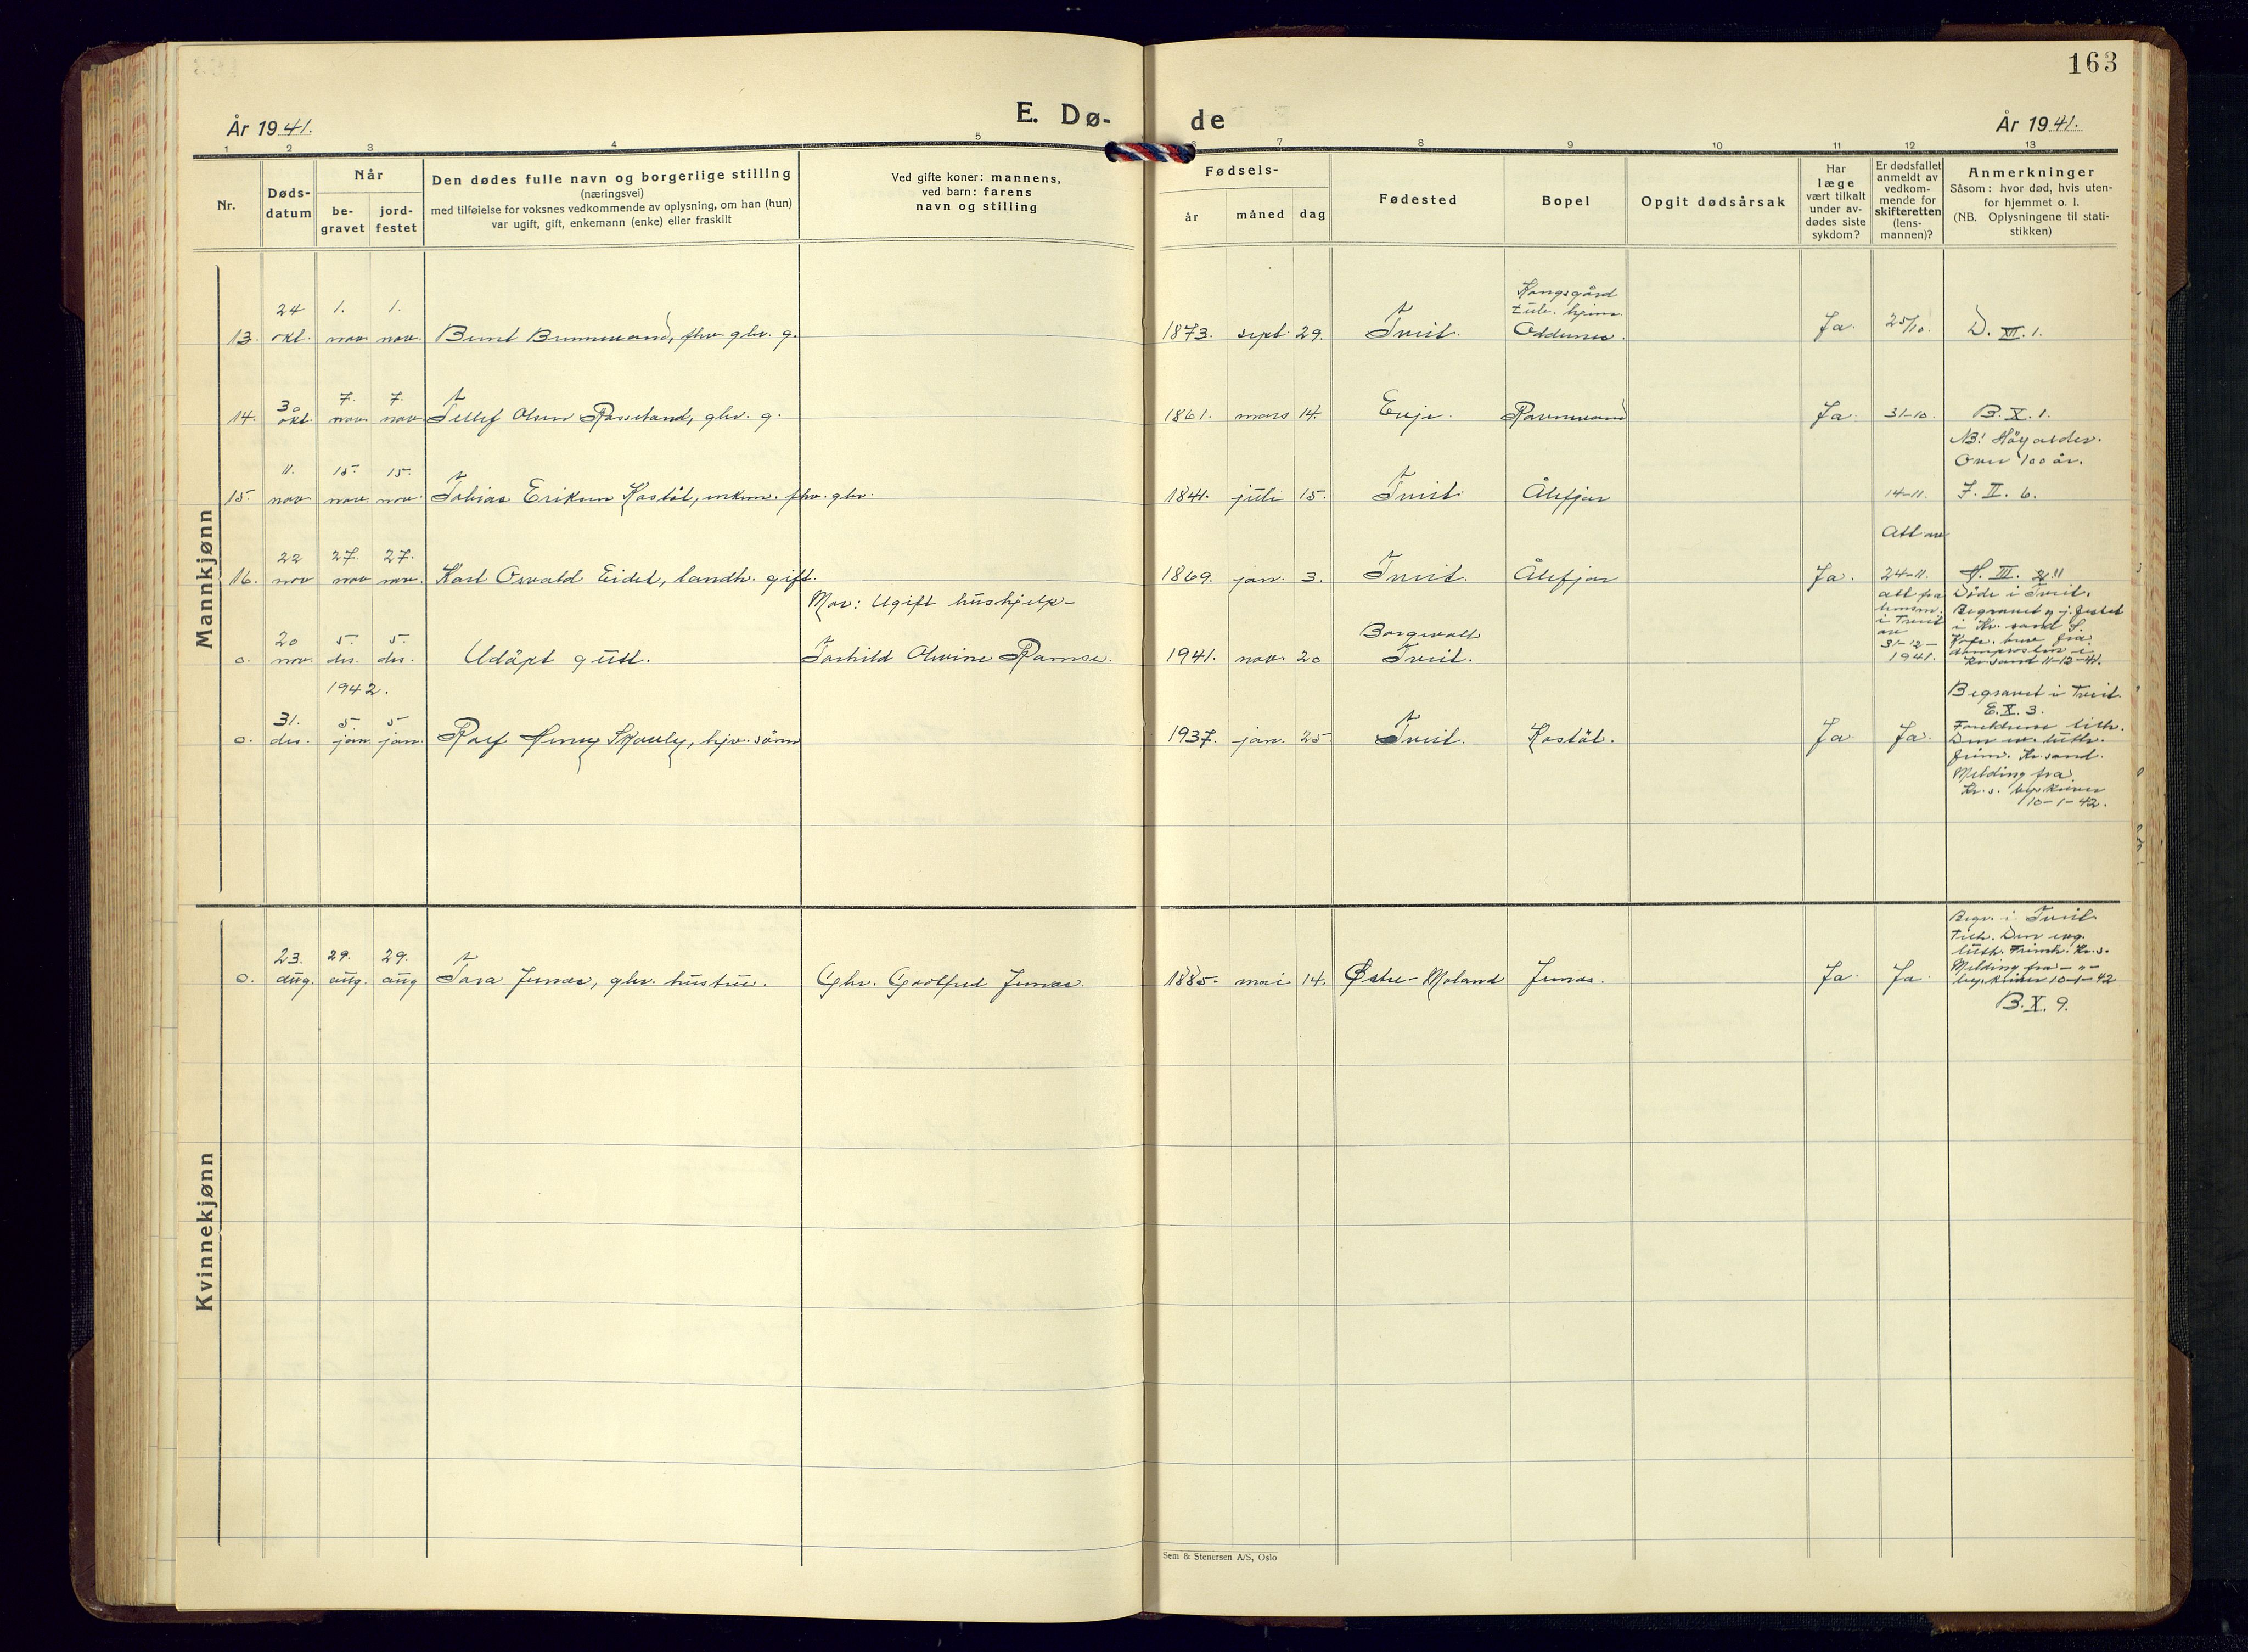 163
E. Dø-
de
År 1941.
År 1941.
1 2 3 4 5 7 8 9 10 11 12 13
Nr.
Døds-
datum
Når
be-
gravet
jord-
festet
Den dødes fulle navn og borgerlige stilling
(næringsvei)
med tilføielse for voksnes vedkommende av oplysning, om han (hun)
var ugift, gift, enkemann (enke) eller fraskilt
Ved gifte koner: mannens,
ved barn: farens
navn og stilling
Fødsels-
år måned dag
Fødested
Bopel
Opgit dødsårsak
Har
læge
vært tilkalt
under av-
dødes siste
sykdom?
Er dødsfallet
anmeldt av
vedkom-
mende for
skifteretten
(lens-
mannen)?
Anmerkninger
Såsom: hvor død, hvis uten-
for hjemmet o. l.
(NB. Oplysningene til stati-
stikken)
Mannkjønn
Kongsgård
24 1. 1.
13. okt. nov. nov. fhv. gbr. g. 1873. sept. 29. Tveit. Oddernes. Ja. 25/10. D. XII. 1.
30 7. 7.
14. okt. nov. nov. Tellef Olsen gbr. g. 1861. mars 14. Evje. Ja. 31-10. B. X. 1.
NB! Høy alder.
Over 100 år.
11. 15. 15.
15. nov. nov. nov. Tobias Eriksen Kostøl, enkem. fhv. gbr. 1841. juli 15. Tveit. Ålefjær 14-11. F. II. 6.
22 27. 27.
16. nov nov. nov. Karl Osvald Eidet, landh. gift. 1869. jan. 3. Tveit. Ålefjær Ja. 24-11.
Mor: Ugift hushjelp-
20 5. 5. Døde i Tveit.
0. nov. des. des. Udøpt gutt. Torhild Olevine Ramse. 1941. nov. 20 Tveit. 31-12-
1941.
Kr.sand 11-12-41.
1942.
Begravet i Tveit
E. X. 3.
31. 5 5
0. des. jan. jan. Rolf Henry Skauly, hjv. sønn 1937. jan. 25 Tveit. Kostøl. Ja. Ja.
Kr.sand.
Melding fra
10-1-42.
Kvinnekjønn
Begr. i Tveit.
23. 29. 29.
0. aug. aug. aug Tara Jernes, gbr. hustru. Gbr. Godtfred Jernes. 1885. mai 14. Østre-Moland Jernes. Ja. Ja.
Melding fra
10-1-42
B. X. 9.
Sem & Stenersen A/S, Oslo